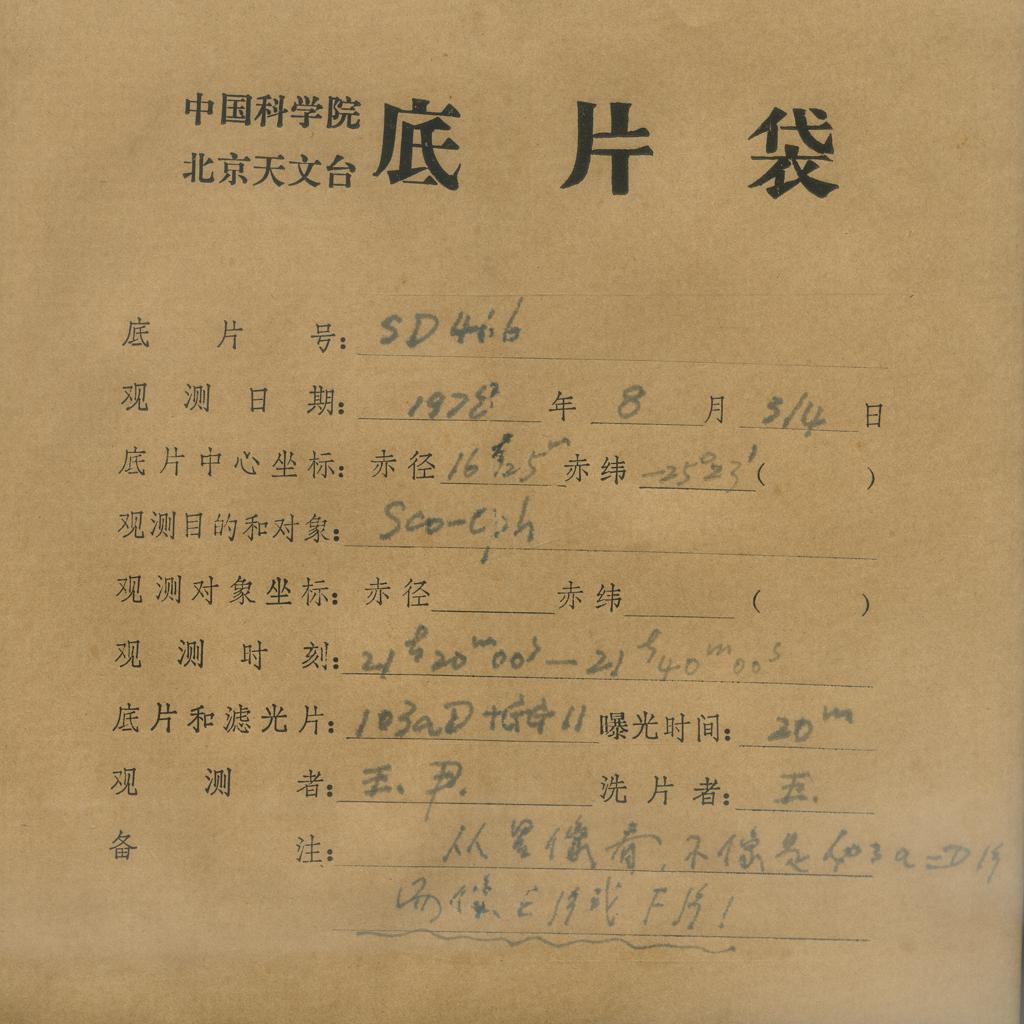 中国科学院
北京天文台
底片袋
底片号：SD 416
观测日期：197 年 8 月 3/4 日
底片中心坐标：赤径 16h25m 赤纬 -25°23′ ( )
观测目的和对象：Sco-Oph
观测对象坐标：赤径 赤纬 ( )
观测时刻：21h20m00s—21h40m00s
底片和滤光片：103aD+GG11 曝光时间：20m
观测者：王. 尹. 洗片者：王.
备注：从星像看，不像是 103a-D片
而像 E片或 F片！